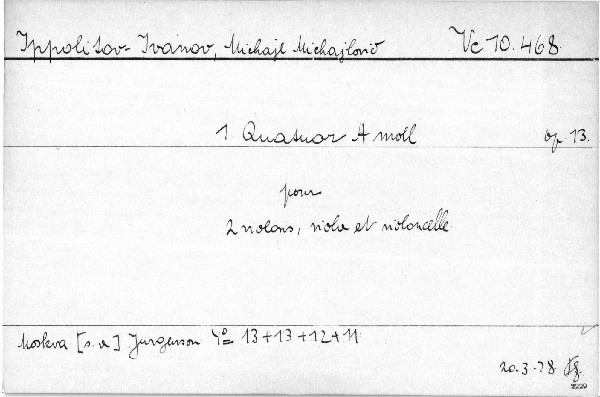 Ippolitov-Ivanov, Michajl Michajlovič Vc 10.468.
1 Quatuor A moll op. 13.
pour
2 violons, viola et violoncelle
Moskva [s.a.] Jurgenson 4° 13+13+12+11
20.3.78